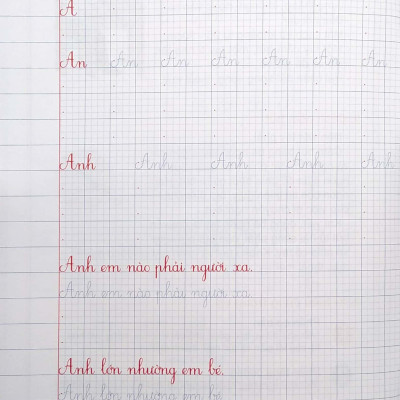 A
An An An An An An An
Anh Anh Anh Anh Anh
Anh em nào phải người xa.
Anh em nào phải người xa.
Anh lớn nhường em bé.
Anh lớn nhường em bé.